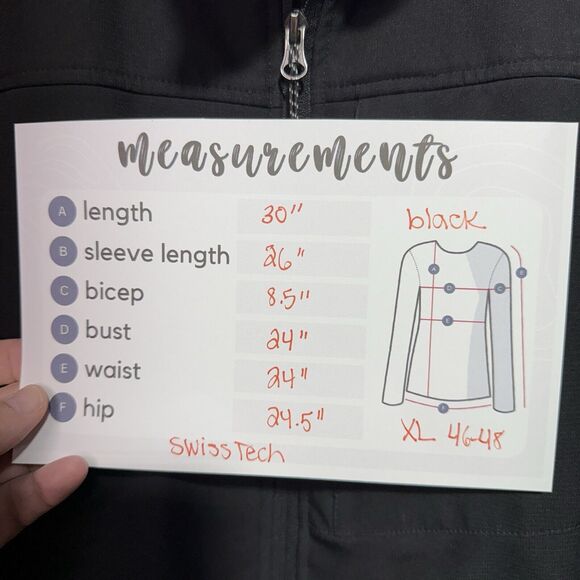 measurements
A length 30" black
B sleeve length 26"
C bicep 8.5"
D bust 24"
E waist 24"
F hip 24.5" XL 46-48
SwissTech